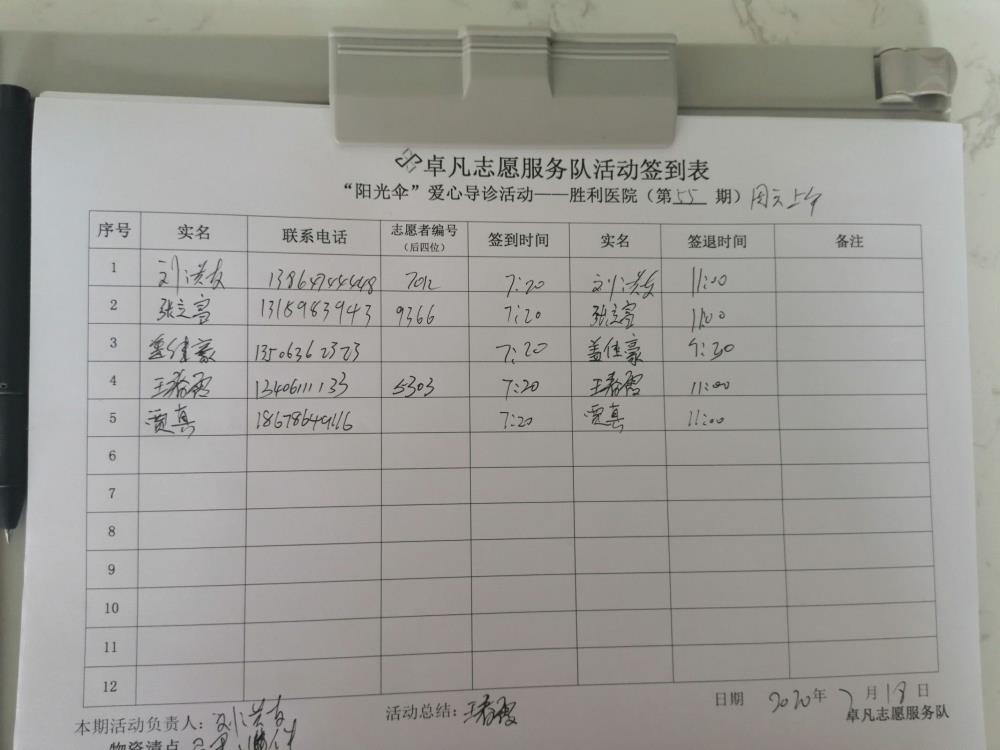 卓凡志愿服务队活动签到表
“阳光伞”爱心导诊活动——胜利医院（第55期）周六上午
序号 实名 联系电话 志愿者编号（后四位） 签到时间 实名 签退时间 备注
1 刘洪友 13864744448 7012 7:20 刘洪友 11:00
2 张立富 1315983943 9366 7:20 张立富 11:00
3 盖佳豪 13506362323 7:20 盖佳豪 9:30
4 王春霞 13406111133 5303 7:20 王春霞 11:00
5 贾真 18678649116 7:20 贾真 11:00
6
7
8
9
10
11
12
本期活动负责人：刘洪友 活动总结：王春霞 日期 2020年7月18日
物资清点 卓凡志愿服务队